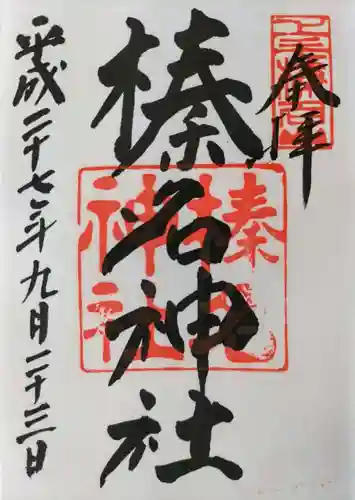 登拝
榛名神社
平成二十七年九月二十三日
榛名神社